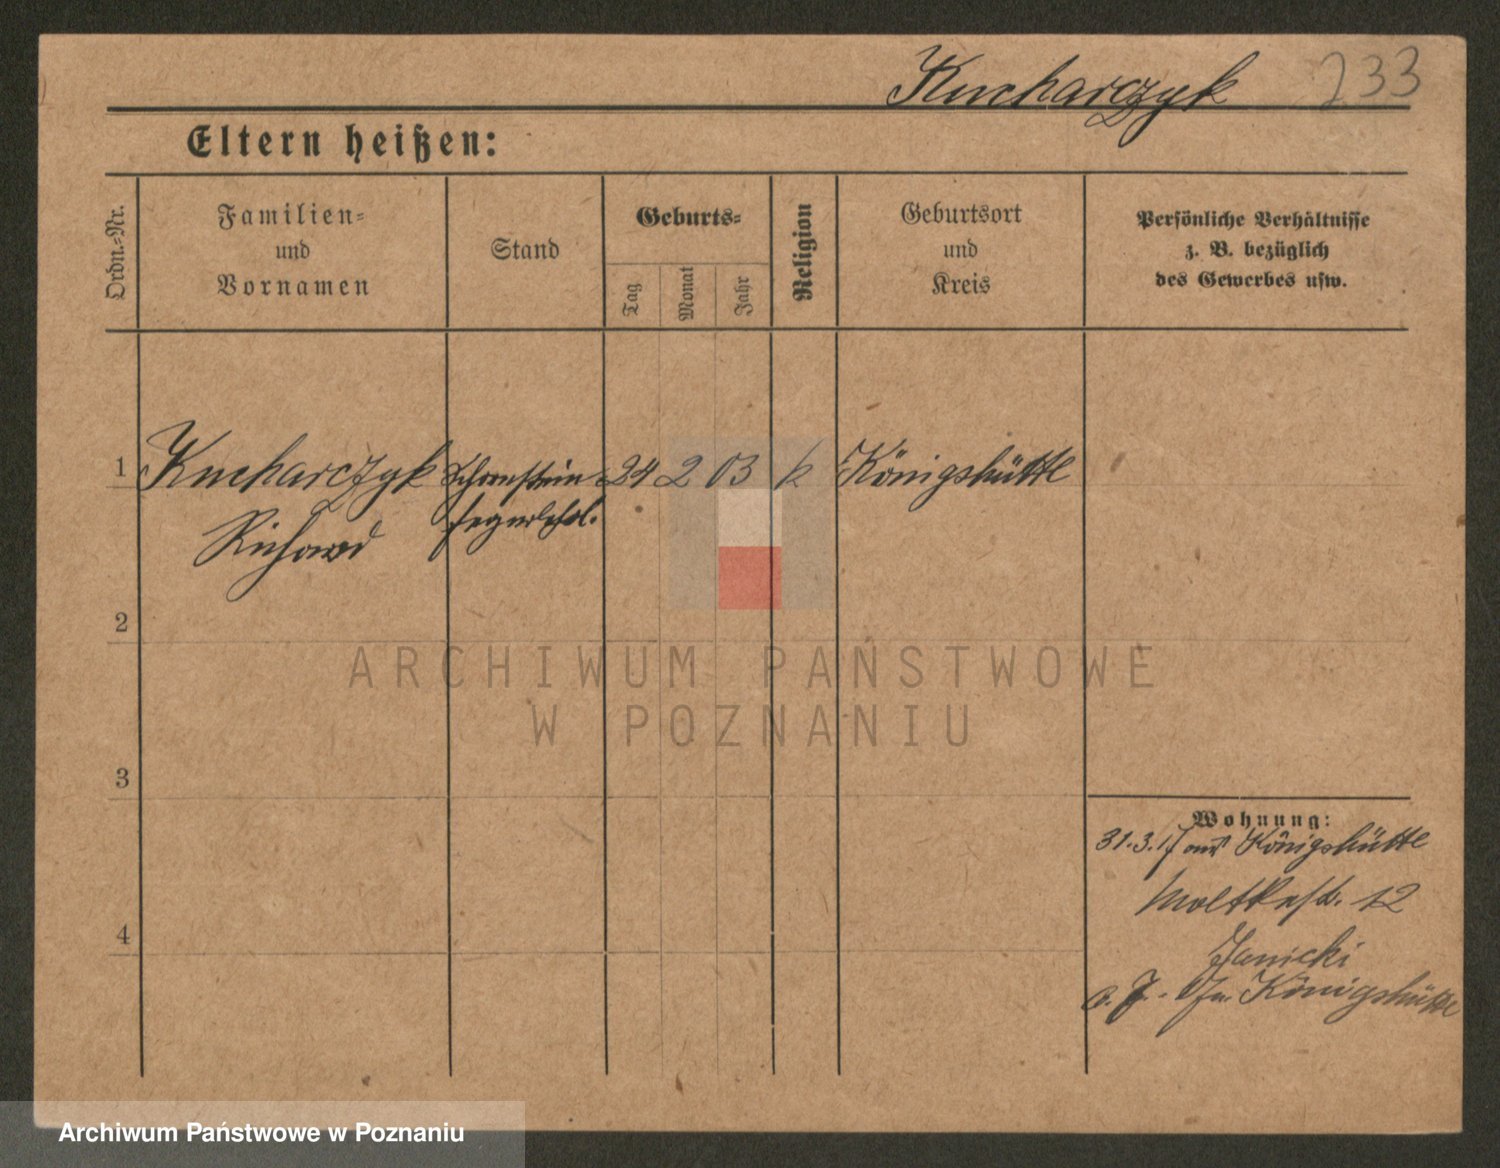 Kucharczyk 233
Eltern heißen:
Ordn.-Nr.
Familien-
und
Vornamen
Stand
Geburts-
Tag
Monat
Jahr
Religion
Geburtsort
und
Kreis
Persönliche Verhältnisse
z. B. bezüglich
des Gewerbes usw.
1 Kucharczyk Schornstein- 24 2 03 k Königshütte
Richard fegerlehrl.
2
3
4
Wohnung:
31.3.17 aus Königshütte
Moltkestr. 12
Janicki
Königshütte
ARCHIWUM PAŃSTWOWE
W POZNANIU
Archiwum Państwowe w Poznaniu